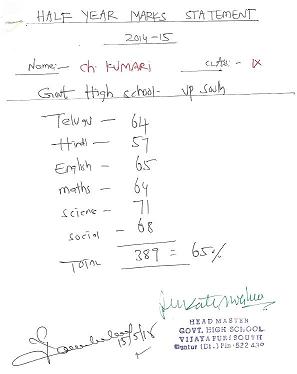 HALF YEAR MARKS STATEMENT
2014-15
Name:- Ch KUMARI CLASS:- IX
Govt High school- VP South
Telugu - 64
Hindi - 57
English - 65
maths - 64
science - 71
social - 68
TOTAL 389 = 65%
HEAD MASTER
GOVT. HIGH SCHOOL
VIJAYAPURI SOUTH
Guntur (Dt.) Pin : 522 439
15/5/15